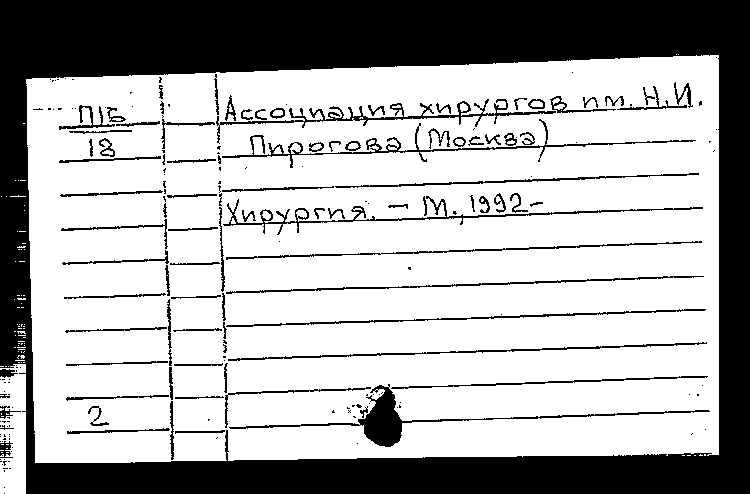 П15 Ассоциация хирургов им. Н.И.
18 Пирогова (Москва)
Хирургия. - М., 1992-
2